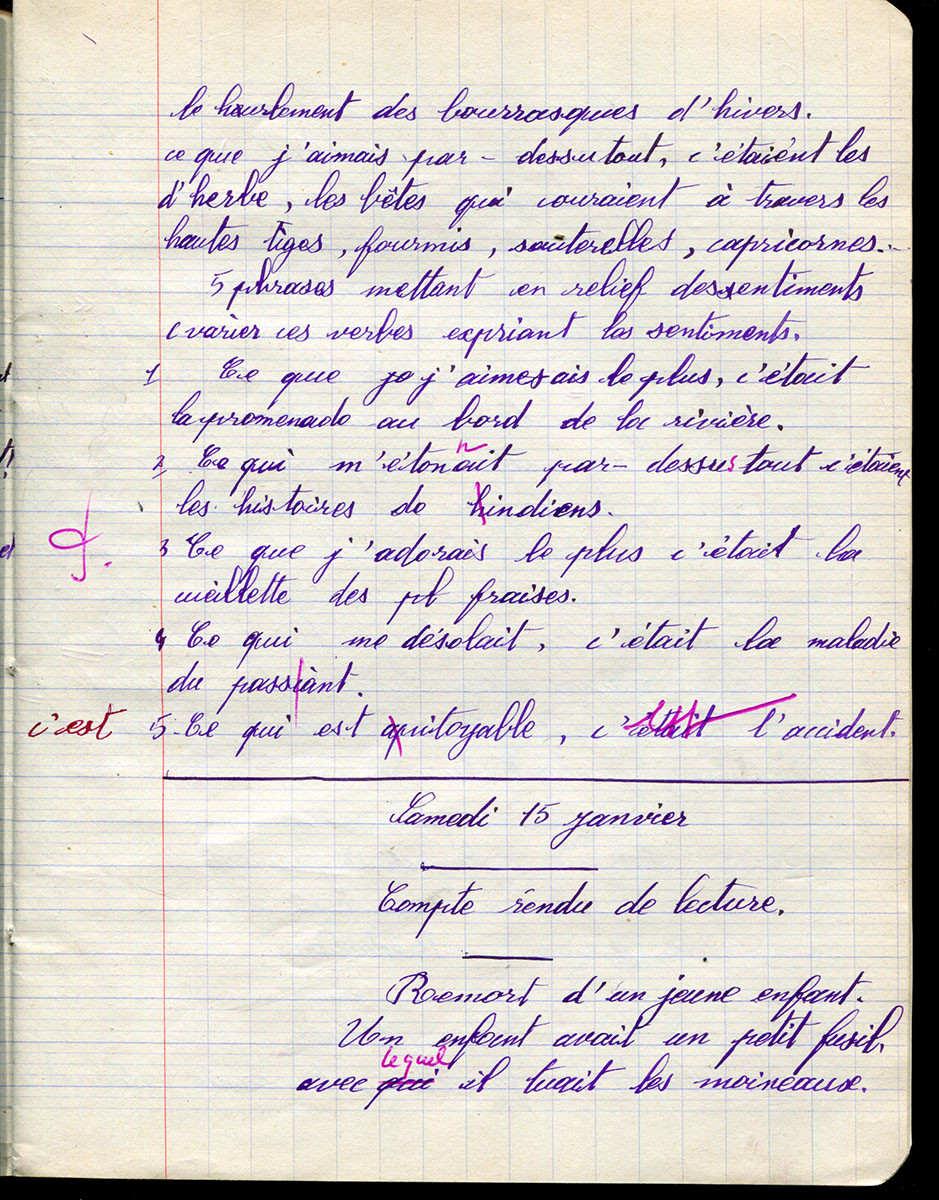 le heurlement des bourrasques d'hivers.
ce que j'aimais par-dessutout, c'étaient les
d'herbe, les bêtes qui couraient à travers les
hautes tiges, fourmis, sauterelles, capricornes...
5 phrases mettant en relief des sentiments
varier ces verbes expriant les sentiments.
1 Ce que je j'aimesais le plus, c'était
la promenade au bord de la rivière.
n
2 Ce qui m'étonait par-dessus tout c'étaient
les histoires de hindiens.
3 Ce que j'adorais le plus c'était la
cueillette des pl fraises.
4 Ce qui me désolait, c'était la maladie
du passiant.
c'est 5. Ce qui est apitoyable, c'était l'accident.
Samedi 15 janvier
Compte rendu de lecture.
Remort d'un jeune enfant.
Un enfant avait un petit fusil,
lequel
avec qui il tuait les moineaux.